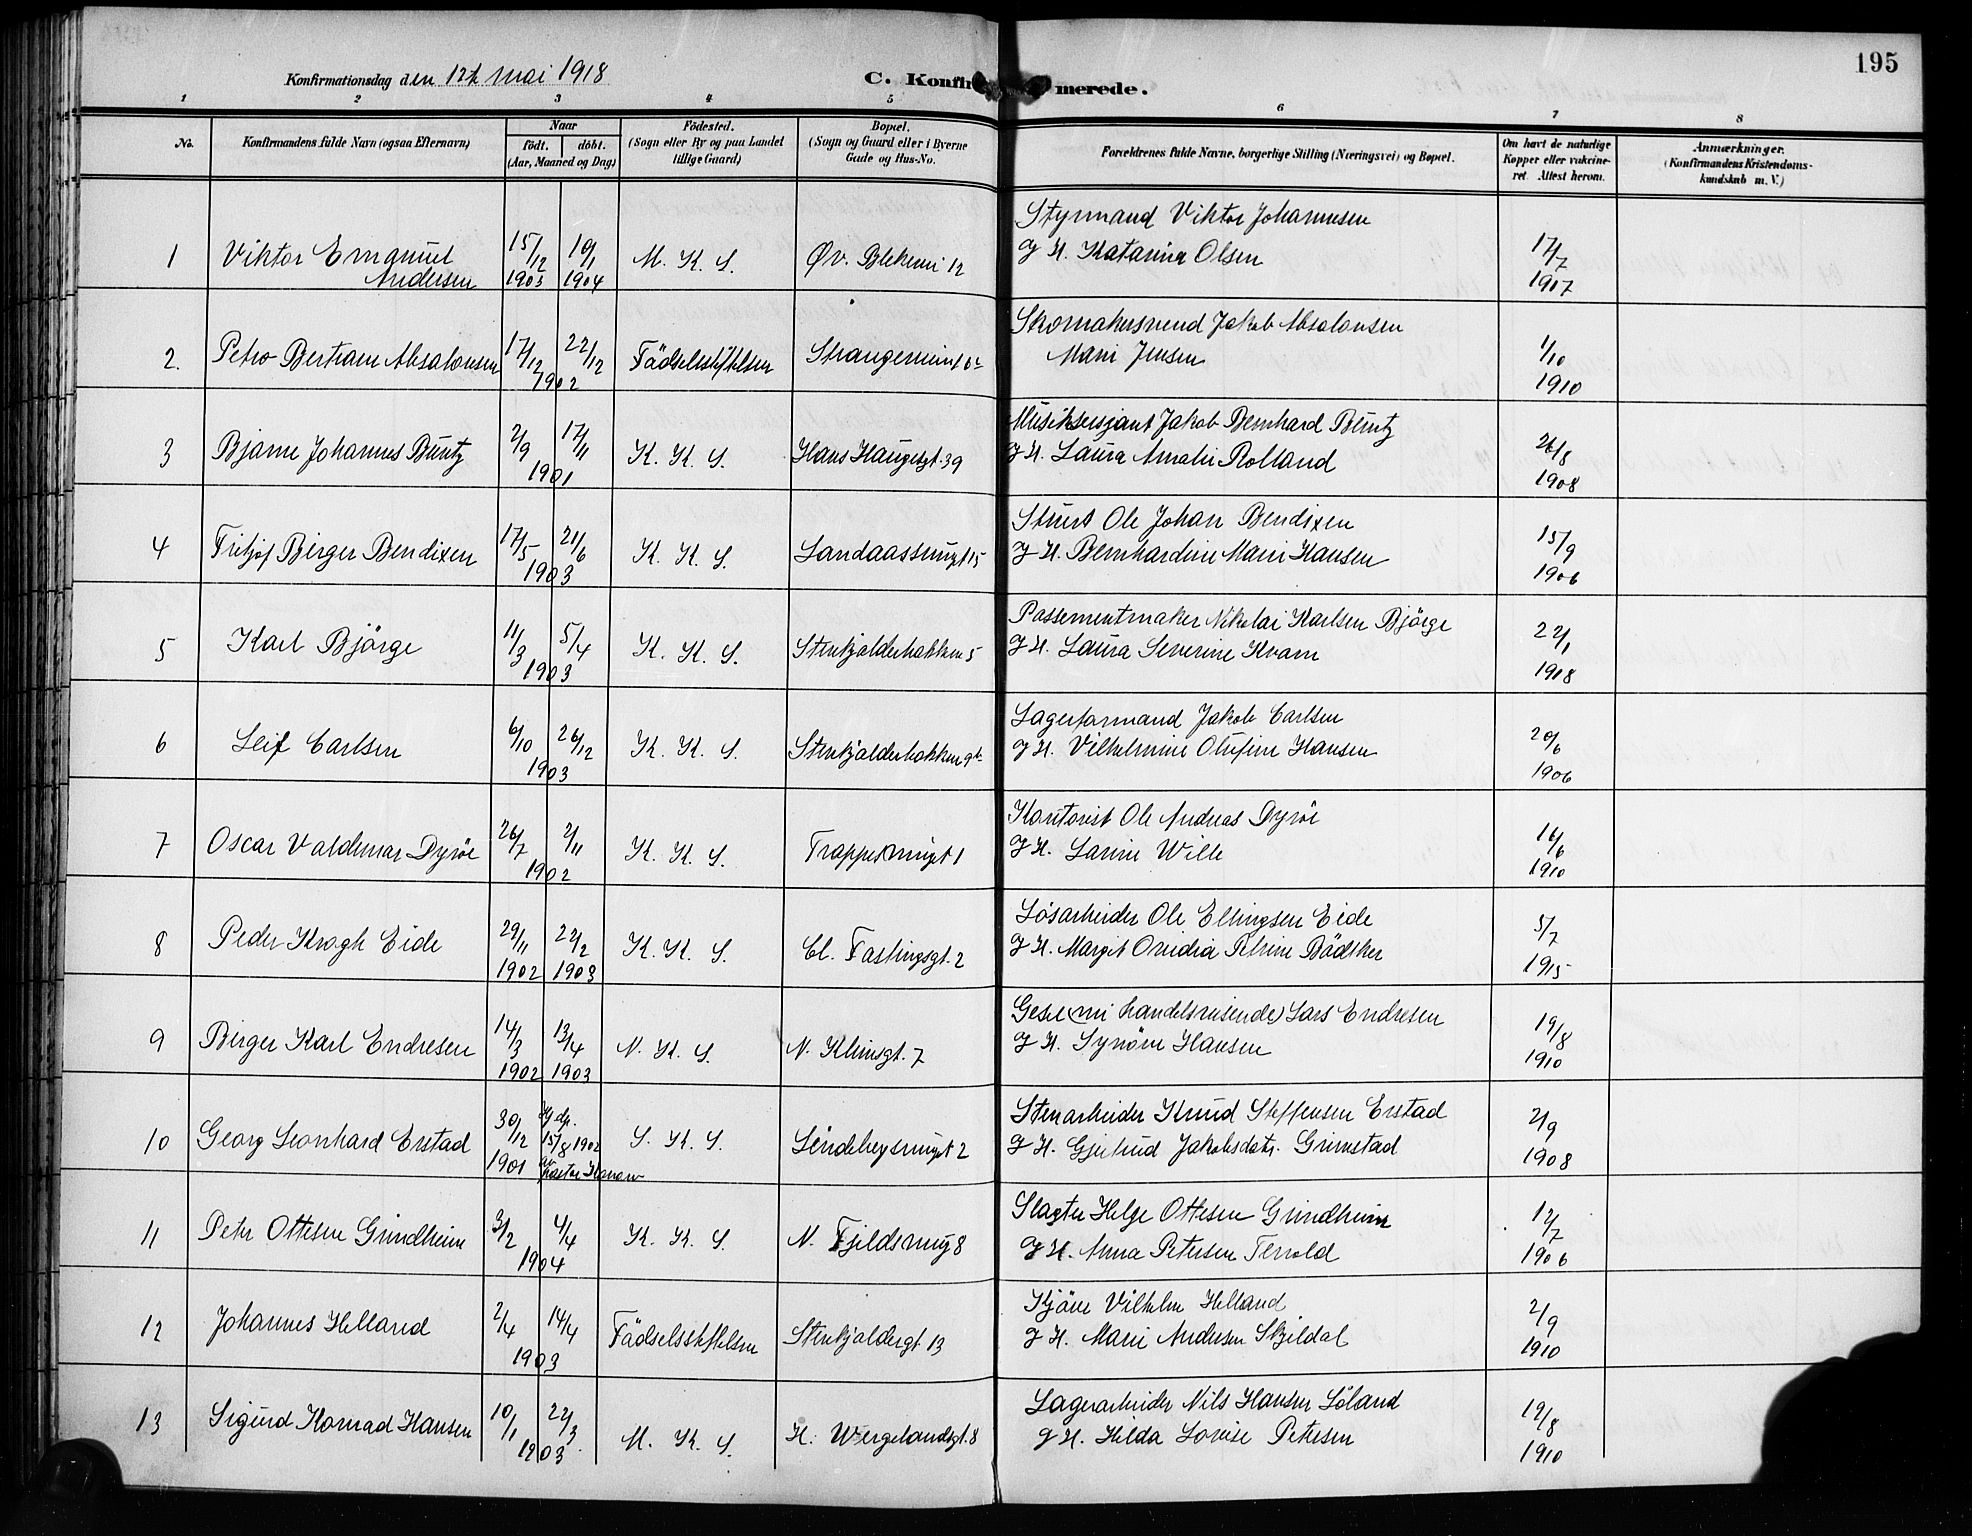 195
Konfirmationsdag den 12te mai 1918
C. Konfirmerede.
1 2 3 4 5 6 7 8
No.
Konfirmandens fulde Navn (ogsaa Efternavn)
Naar
født. døbt.
(Aar, Maaned og Dag)
Fødested.
(Sogn eller By og paa Landet
tillige Gaard)
Bopæl.
(Sogn og Gaard eller i Byerne
Gade og Hus-No.
Forældrenes fulde Navne, borgerlige Stilling (Næringsvei) og Bopæl.
Om havt de naturlige
Kopper eller vakcine-
ret. Attest herom.
Anmærkninger.
(Konfirmandens Kristendoms-
kundskab m. V.)
1 Viktor Emanuel Andersen 15/12 1903 10/1 1904 M. K. S. Øv. Blekevei 12
Styrmand Viktor Johannesen
g H. Katarina Olsen
17/7 1917
2. Petro Bertram Absalonsen 17/12 22/12 1902 Födselsstiftelsen
Skomakersvend Jakob Absalonsen
Marie Jensen
1/10 1910
3 Bjarne Johannes Büntz 2/9 17/11 1901 K. K. S. Hans Haugesgt. 39
Musiksersjant Jakob Bernhard Büntz
g H. Laura Amalie Rolland
26/8 1908
4 Fritjof Birger Bendixen 17/5 21/6 1903 K. K. S. Landaassmuget 15
Stuert Ole Johan Bendixen
g H. Bernhardine Marie Hansen
15/9 1906
5 Karl Björge 11/3 5/4 1903 K. K. S. Stenkjalderbakken 5
Possementmaker Nikolai Karlsen Björge
g H. Laura Severine Kvam
22/1 1918
6 Leif Carlsen 6/10 26/12 1903 K. K. S. Stenkjalderbakken 9b
Lagerformand Jakob Carlsen
g H. Vilhelmine Olufine Hansen
20/6 1906
7 Oscar Valdemar Dyröe 26/7 2/11 1902 K. K. S. Trappesmuget 1
Kontorist Ole Andreas Dyröe
g H. Lavine Wille
16/6 1910
8 Peder Krogh Eide 29/11 1902 22/2 1903 K. K. S. Cl. Fastingsgt. 2
Lösarbeider Ole Ellingsen Eide
g H. Margit Ovidia Petrine Bödtker
5/7 1915
9 Birger Karl Endresen 14/3 1902 13/4 1903 N. K. S. N. 7
(nu handelsreisende) Lars Endresen
g H. Synöve Hansen
19/8 1910
10 Georg Leonhard Erstad 30/12 1901 Hj. dp. 15/8 1902 av pastor Konow S. K. S. 2
Stenarbeider Knud Steffensen Erstad
g H. Gjertrud Jakobsdatr. Grimstad
2/9 1908
11 Peter Ottesen Grindheim 3/2 4/4 1904 K. K. S. N. Fjeldsmug 8
Slagter Helge Ottesen Grindheim
g H. Anna Petersen Tenold
12/7 1906
12 Johannes Helland 2/4 14/4 1903 Födselsstiftelsen Stenkjaldergt. 13
Vilhelm Helland
g H. Marie Andersen Skjildal
2/9 1910
13 Sigurd Konrad Hansen 10/1 22/3 1903 M. K. S. H. Wergelandsgt. 8
Lagerarbeider Nils Hansen Löland
g H. Hilda Lovise Petersen
19/8 1910